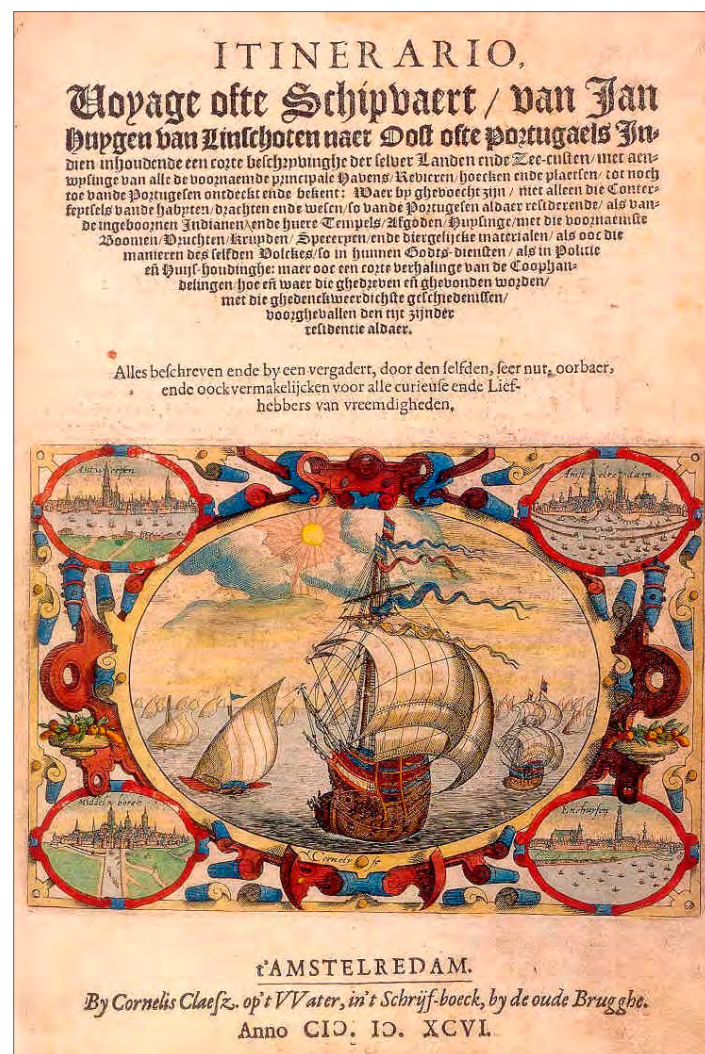 ITINERARIO,
Voyage ofte Schipvaert / van Jan
Huygen van Linschoten naer Oost ofte Portugaels In-
dien inhoudende een corte beschryvinghe der selver Landen ende Zee-custen / met aen-
wysinge van alle de voornaemde principale Havens / Revieren / hoecken ende plaetsen / tot noch
toe vande Portugesen ontdeckt ende bekent: Waer by ghevoecht zijn / niet alleen die Conter-
feytsels vande habyten / drachten ende wesen / so vande Portugesen aldaer residerende / als van-
de ingeboornen Indianen / ende huere Tempels / Afgoden / Huysinge / met die voornaemste
Boomen / Vruchten / Kruyden / Speceryen / ende diergelijcke materialen / als ooc die
manieren des selfden Volckes / so in hunnen Godts-diensten / als in Politie
eñ Huys-houdinghe: maer ooc een corte verhalinge van de Coophan-
delingen / hoe eñ waer die ghedreven eñ ghevonden worden /
met die ghedenckweerdichste geschiedenissen /
voorghevallen den tijt zijnder
residentie aldaer.
Alles beschreven ende by een vergadert, door den selfden, seer nut, oorbaer,
ende oock vermakelijcken voor alle curieuse ende Lief-
hebbers van vreemdigheden.
Antwerpen
Amstelredam
Middelboren
Enchuysen
t'AMSTELREDAM.
By Cornelis Claesz. op't VVater, in't Schrijf-boeck, by de oude Brugghe.
Anno CIↃ. IↃ. XCVI.